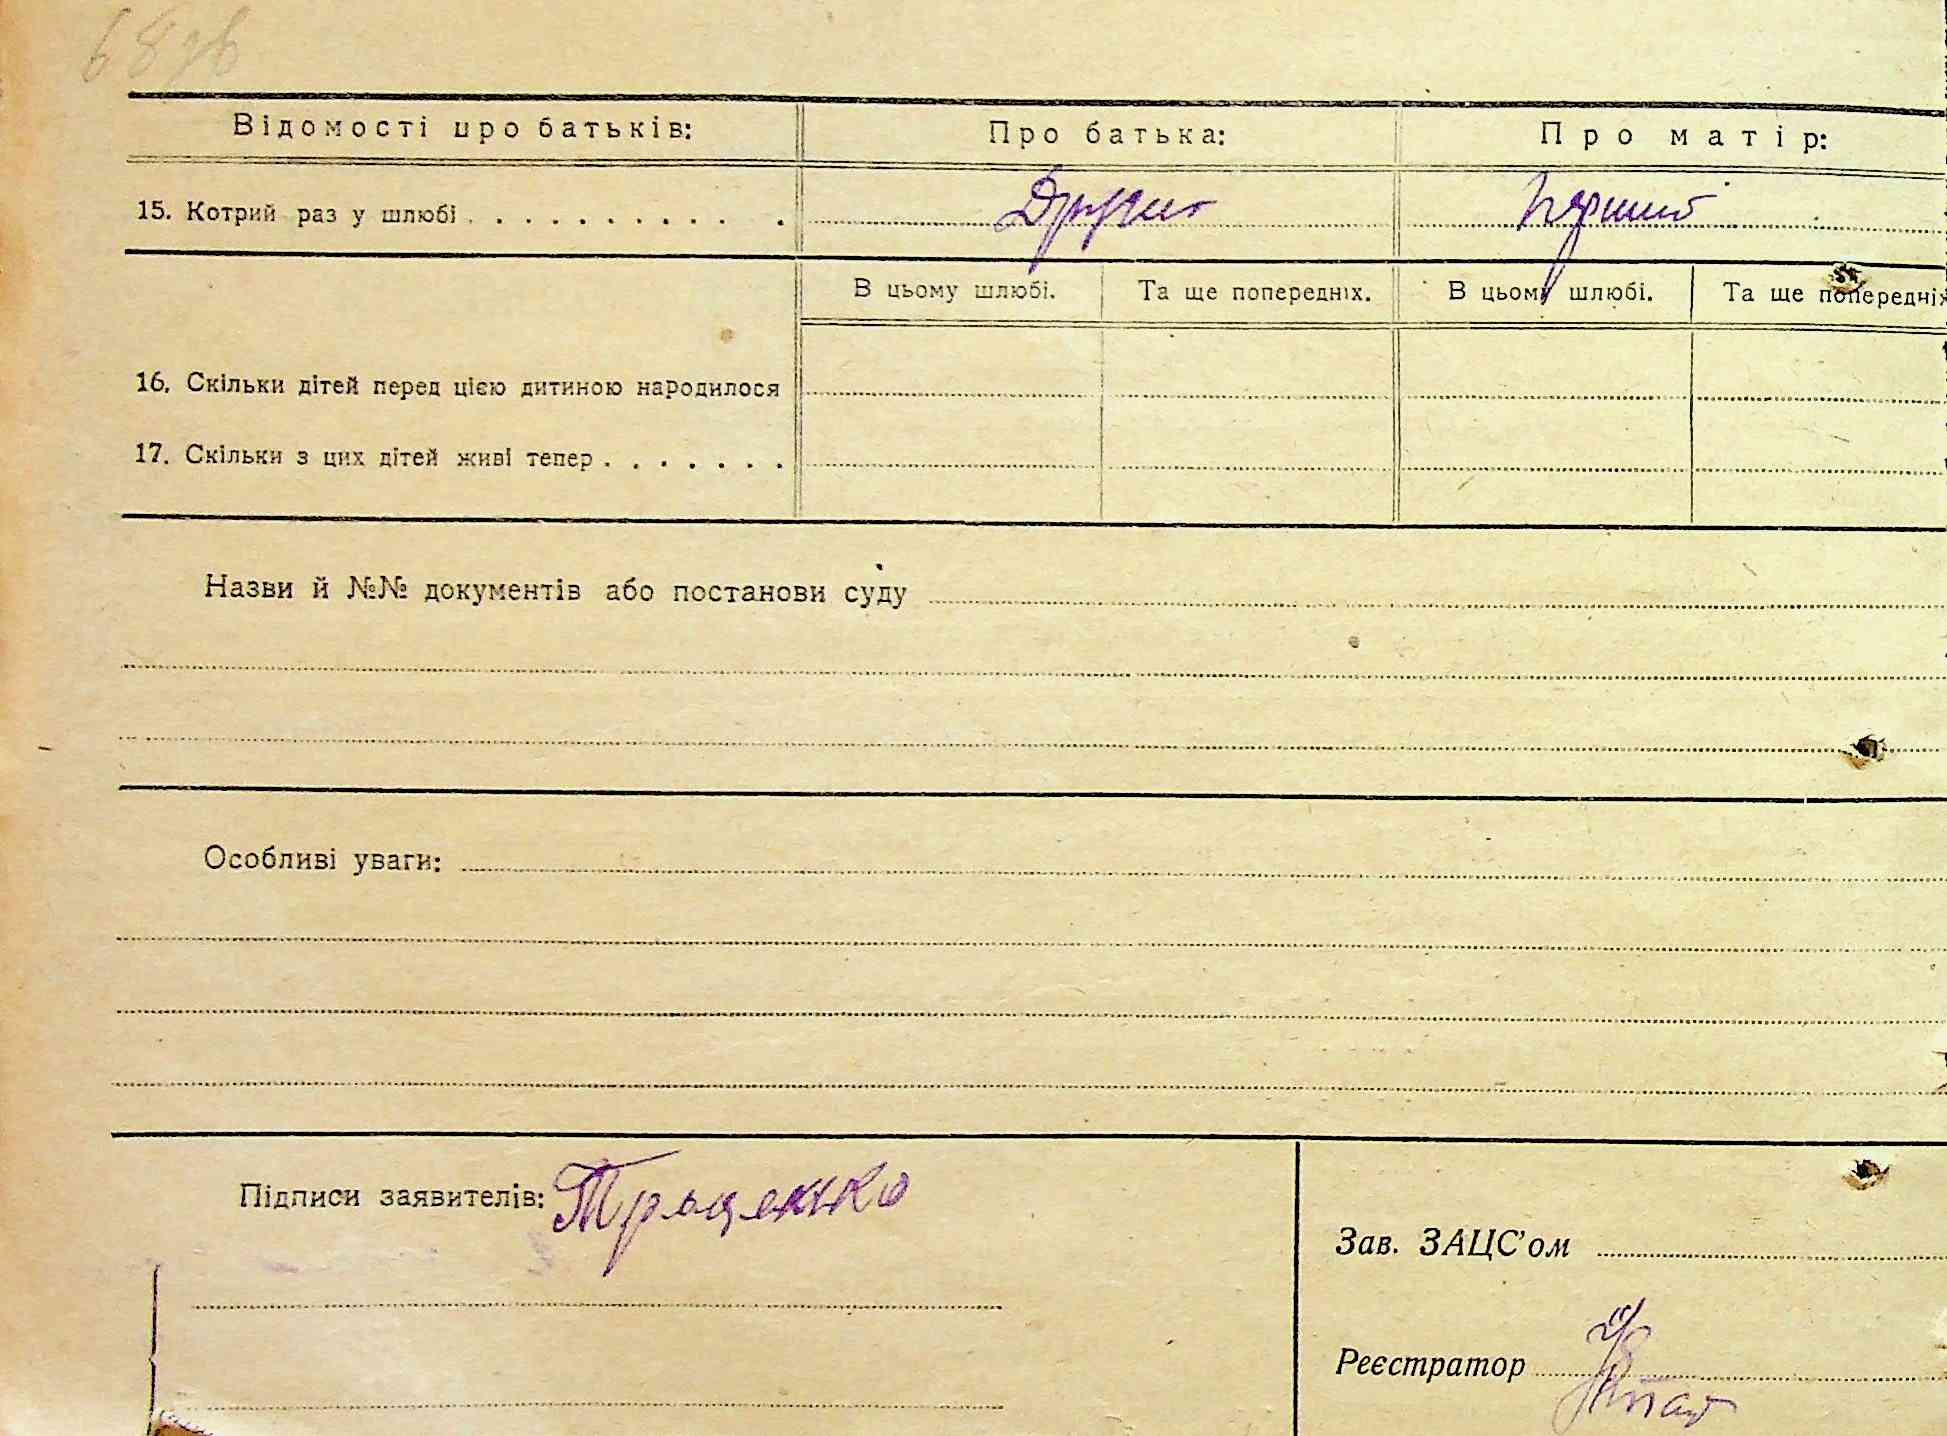 68 зв
Відомості про батьків: Про батька: Про матір:
15. Котрий раз у шлюбі . . . . . . . . . . . Другий Перший
В цьому шлюбі. Та ще попередніх. В цьому шлюбі. Та ще попередніх
16. Скільки дітей перед цією дитиною народилося
17. Скільки з цих дітей живі тепер . . . . . . .
Назви й №№ документів або постанови суду
Особливі уваги:
Підписи заявителів: Троценко
Зав. ЗАЦС'ом
Реєстратор